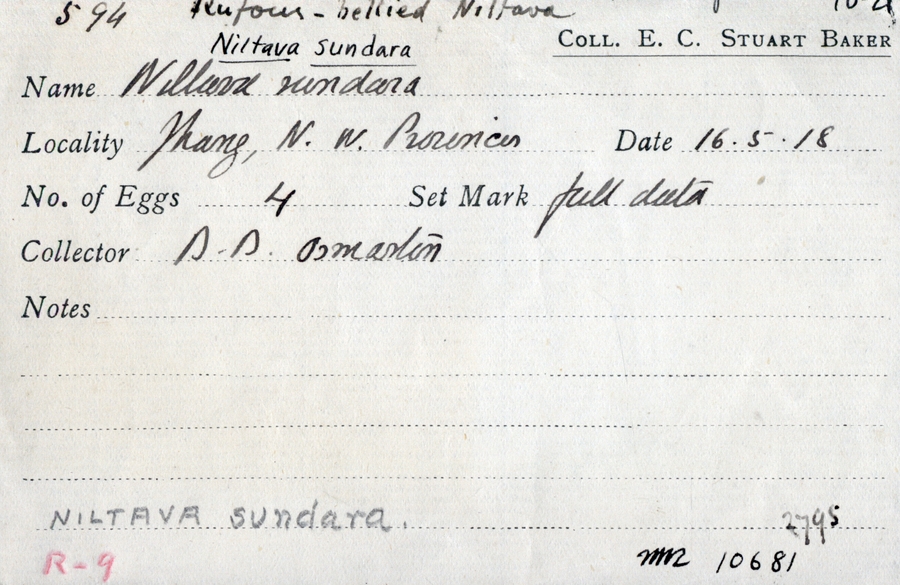 594 Rufous-bellied Niltava
Niltava sundara COLL. E. C. STUART BAKER
Name Niltava sundara
Locality N. W. Provinces Date 16.5.18
No. of Eggs 4 Set Mark full data
Collector B. B. Osmaston
Notes
NILTAVA sundara.
2795
R-9 10681